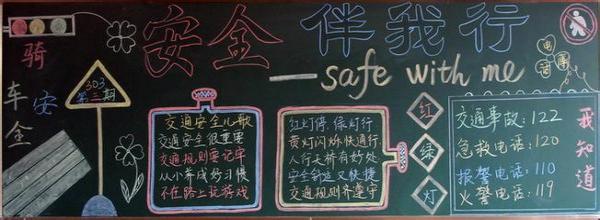 安全伴我行
safe with me
骑车安全
303
第三期
交通安全儿歌
交通安全很重要
交通规则要记牢
从小养成好习惯
不在路上玩游戏
红灯停，绿灯行
黄灯闪烁快通行
人行天桥有好处
安全舒适又快捷
交通规则齐遵守
红
绿
灯
电话
交通事故：122
急救电话：120
报警电话：110
火警电话：119
我知道